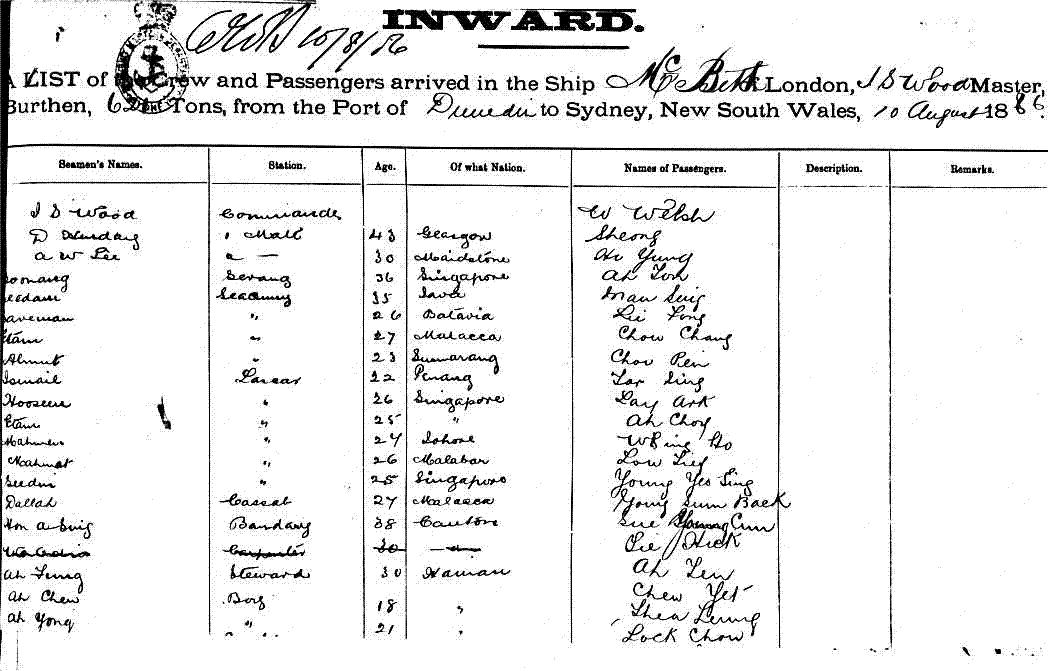 INWARD.
10/8/86
A LIST of the Crew and Passengers arrived in the Ship McBeth London, J S Wood Master,
Burthen, Tons, from the Port of Dunedin to Sydney, New South Wales, 10 August 1886.
Seamen's Names. Station. Age. Of what Nation. Names of Passengers. Description. Remarks.
J S Wood Commander W Welsh
D 1 Mate 43 Glasgow Sheong
A W Lee 2 — 30 Maidstone Ho Yung
Serang 36 Singapore Ah Ton
Seacunny 35 Java Sing
aveman " 26 Batavia Lee Fong
Etam " 27 Malacca Chow Chang
Ahmut " 23 Sumarang Chow Pen
Ismail Lascar 22 Penang Sing
Hoosein " 26 Singapore Lay Ark
Etam " 25 " Ah Choy
" 27 Johore Ho
Mahmat " 26 Malabar Low
Seedin " 25 Singapore Young Yes Sing
Dallah Cassab 27 Malacca Yong Sum Back
Hon A Sing Bandary 38 Canton Sue Young Cum
Carpenter 30 Hick
Ah Steward 30 Hainan Ah Len
Ah Chew Boy 18 " Chew Yet
Ah Yong " 21 " Shea Leung
Lock Chow